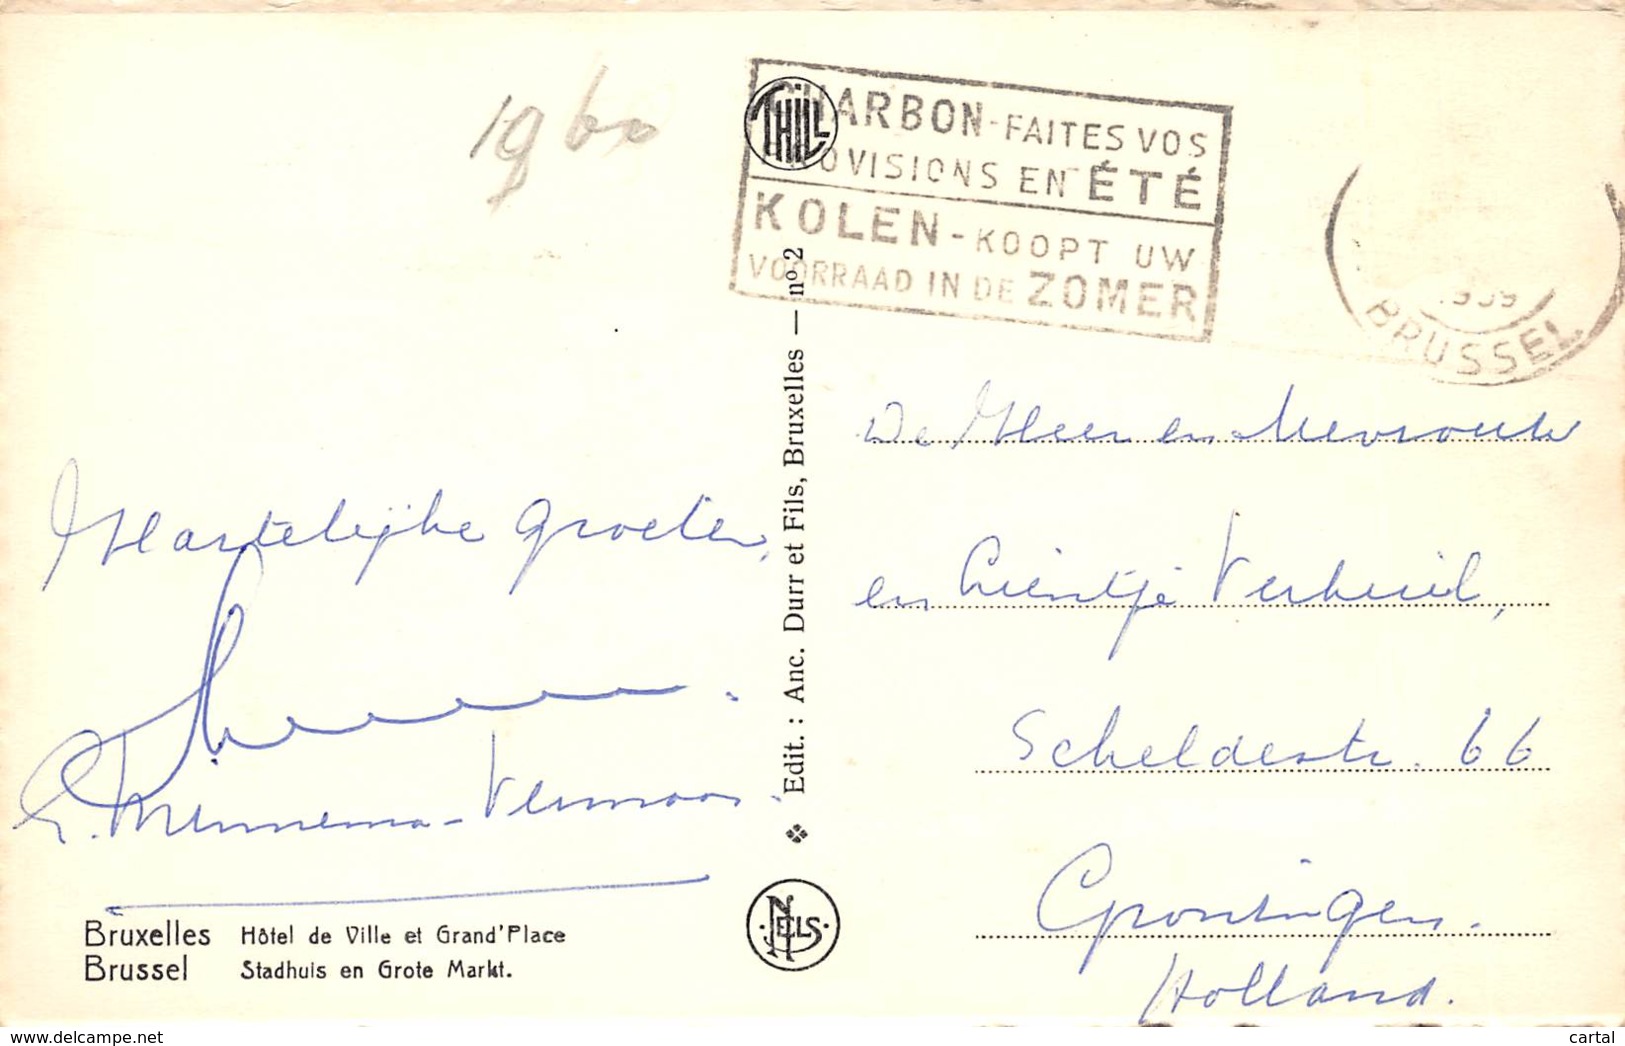 1960
THILL
CHARBON - FAITES VOS
PROVISIONS EN ÉTÉ
KOLEN - KOOPT UW
VOORRAAD IN DE ZOMER
1959
BRUSSEL
De Heer en Mevrouw
en Lientje Verkuil,
Scheldestr. 66
Groningen.
Holland.
Hartelijke groeten,
Minnema - Vermaas.
Edit. : Anc. Durr et Fils, Bruxelles — nº 2
NELS
Bruxelles Hôtel de Ville et Grand'Place
Brussel Stadhuis en Grote Markt.
www.delcampe.net
cartal